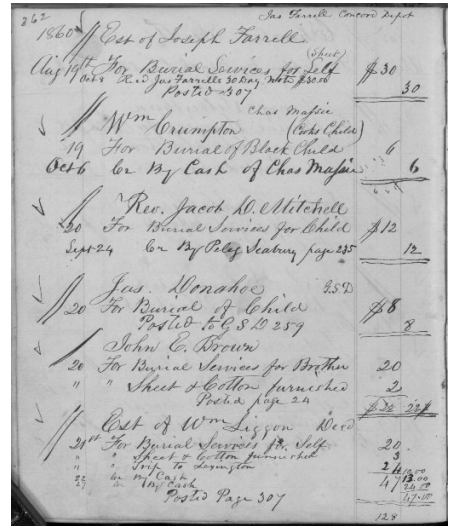 262
Jas Farrell Concord Depot
1860
Est of Joseph Farrell
(Sheet)
Aug 19th For Burial Services for Self $30
Oct 8 Recd Jas Farrells 30 day note $30.00 30
Posted 307
Chas Massie
Wm Crumpton (Cooks Child)
19 For Burial of Black Child 6
Oct 6 Cr By Cash of Chas Massie 6
Rev. Jacob D. Mitchell
20 For Burial Services for Child $12
Sept 24 Cr By Peleg Seabury page 235 12
Jas. Donahoe G.S.D
20 For Burial of Child $8
Posted to G S D 259 8
John E. Brown
20 For Burial Services for Brother 20
" " Sheet & Cotton furnished 2
Posted page 24 $22 22
Est of Wm Liggon Decd
21st For Burial Services for Self 20
" " Sheet & Cotton furnished 3
" " Trip to Lexington 24
22 Cr By Cash 10.00
27 Cr By Cash 47 13.00
24.00
Posted Page 307 47.00
128